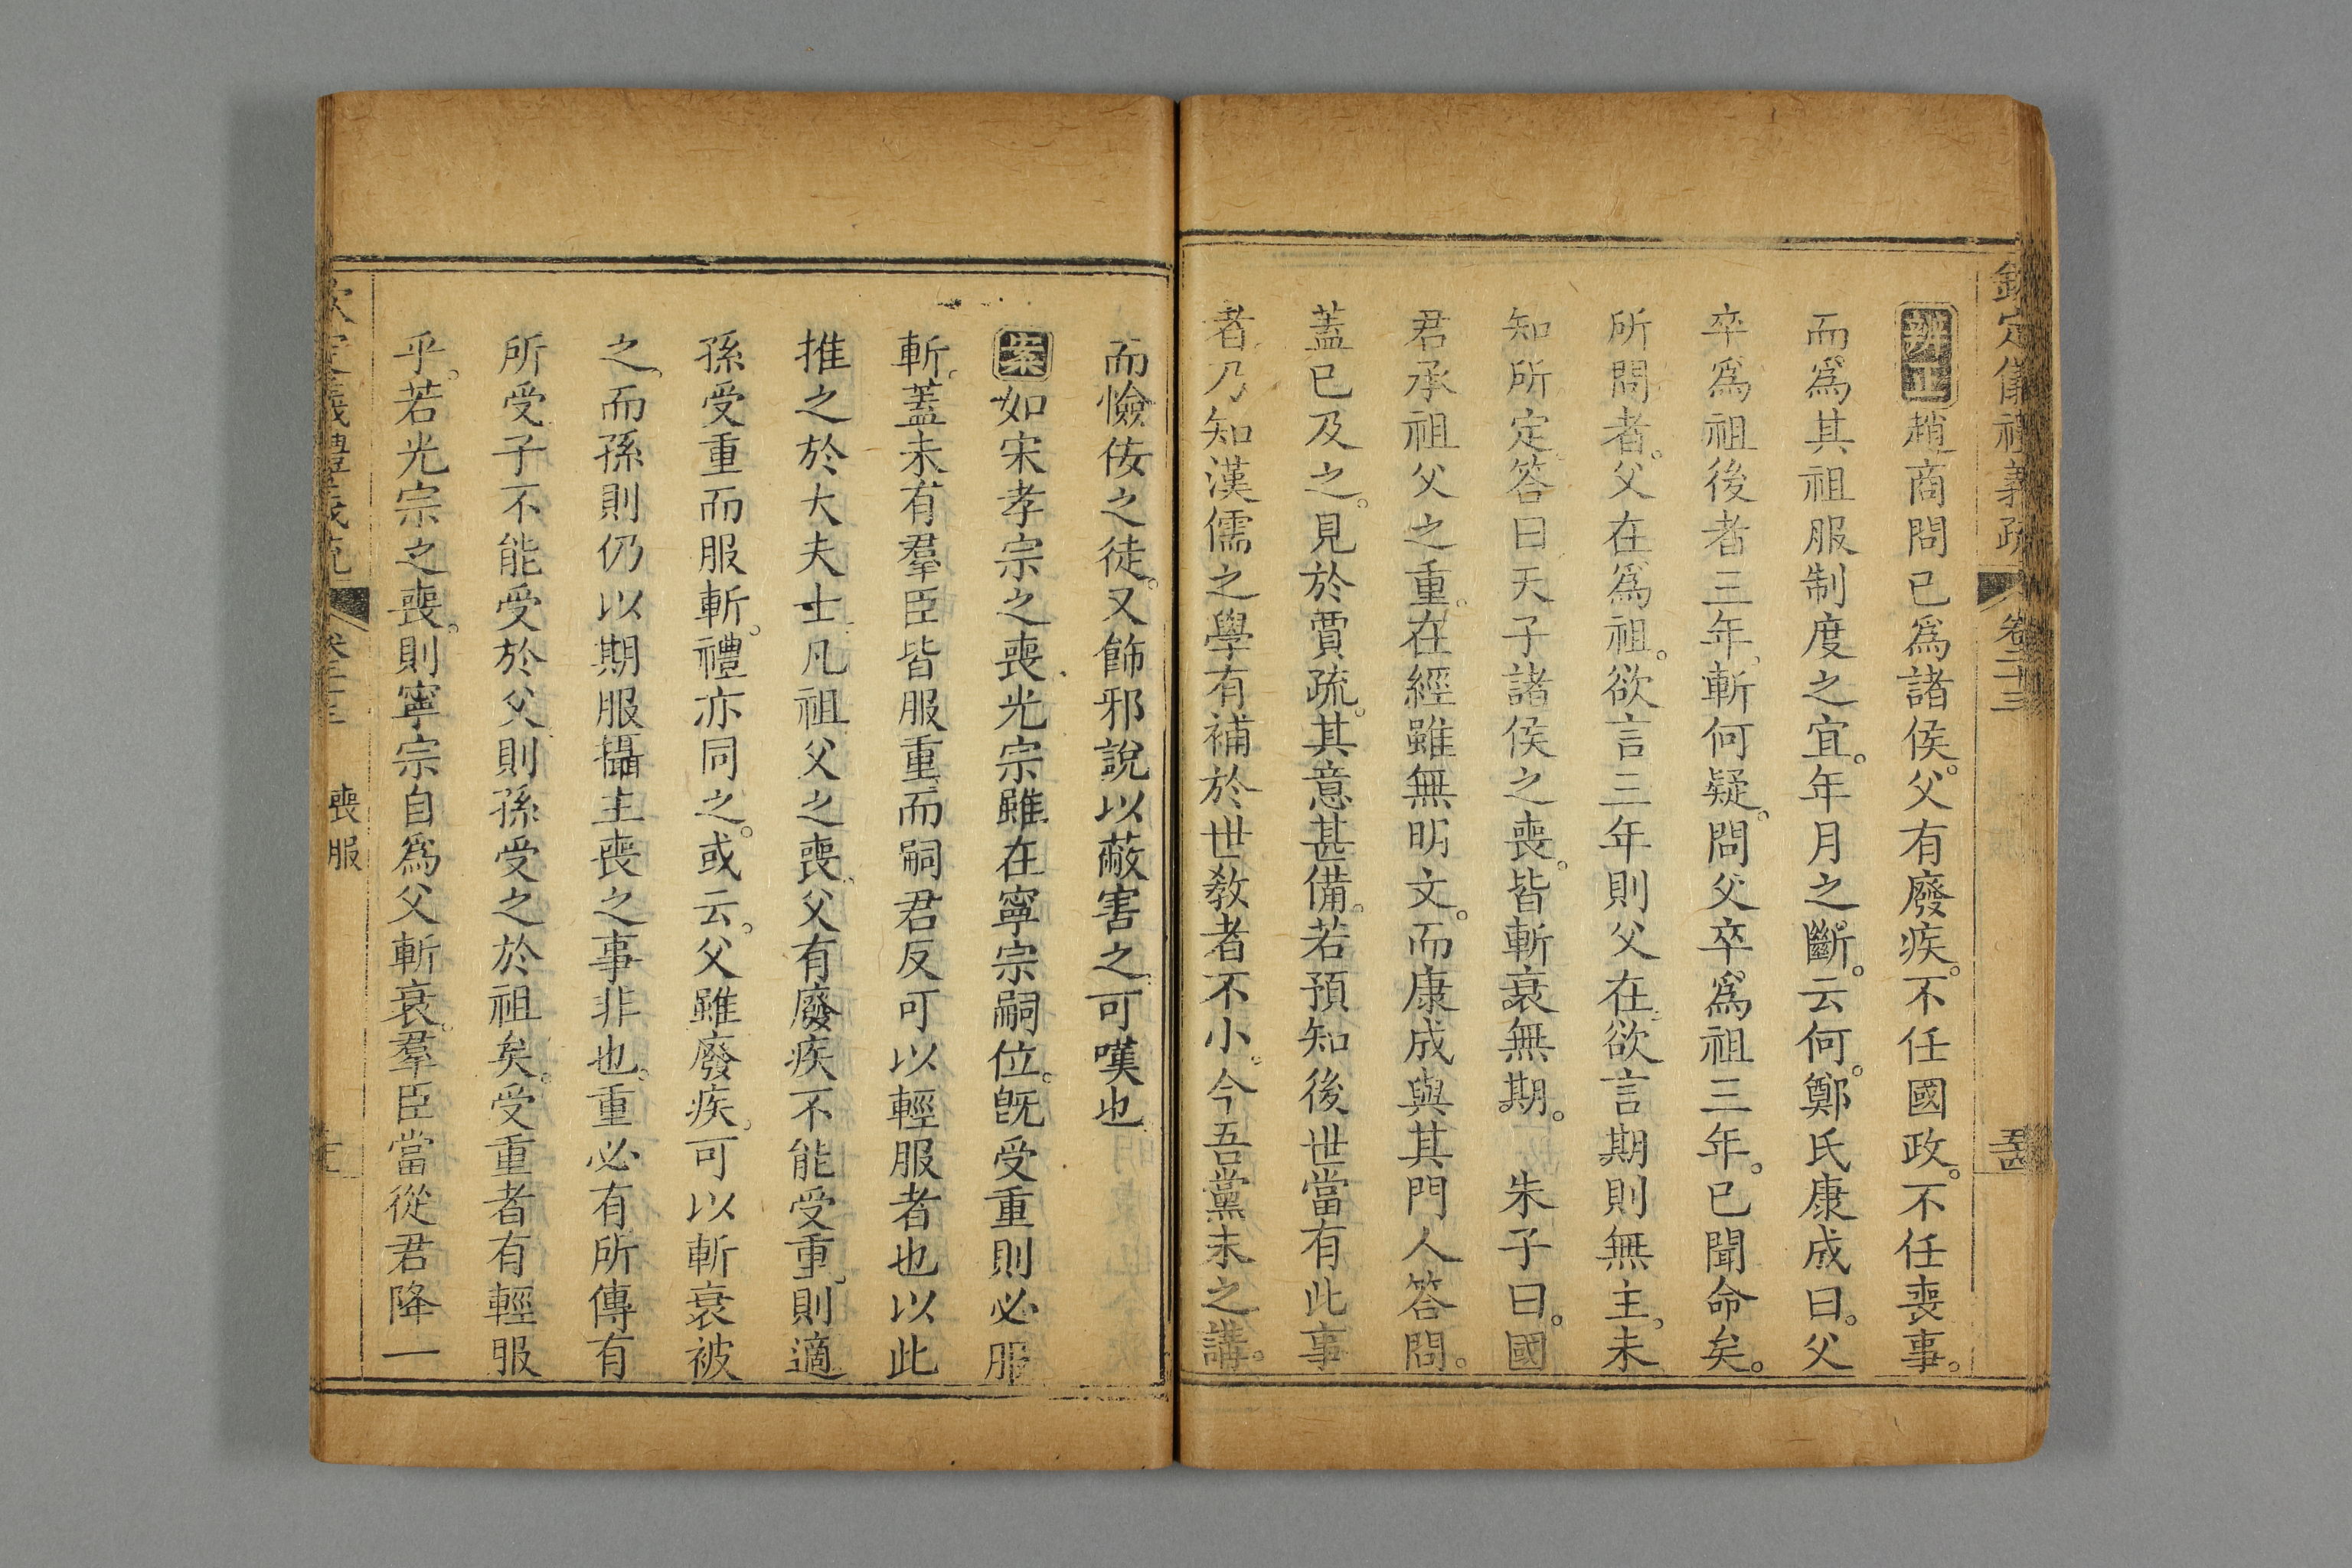 欽定儀禮義疏 卷二十三
辨正趙商問已爲諸侯。父有廢疾。不任國政。不任喪事。
而爲其祖服制度之宜。年月之斷。云何。鄭氏康成曰。父
卒爲祖後者三年斬何疑。問父卒爲祖三年。已聞命矣。
所問者。父在爲祖。欲言三年則父在。欲言期則無主。未
知所定答曰天子諸侯之喪。皆斬衰無期。 朱子曰。國
君承祖父之重。在經雖無明文。而康成與其門人答問。
蓋已及之。見於賈疏。其意甚備。若預知後世當有此事
者乃知漢儒之學有補於世敎者不小。今吾黨未之講。
而憸佞之徒。又飾邪說以蔽害之。可嘆也
案如宋孝宗之喪。光宗雖在寧宗嗣位。旣受重則必服
斬。蓋未有羣臣皆服重而嗣君反可以輕服者也以此
推之於大夫士凡祖父之喪。父有廢疾不能受重。則適
孫受重而服斬。禮亦同之。或云。父雖廢疾。可以斬衰被
之。而孫則仍以期服攝主喪之事非也。重必有所傳有
所受子不能受於父。則孫受之於祖矣。受重者有輕服
乎。若光宗之喪。則寧宗自爲父斬衰。羣臣當從君降一
定儀禮義疏
喪服